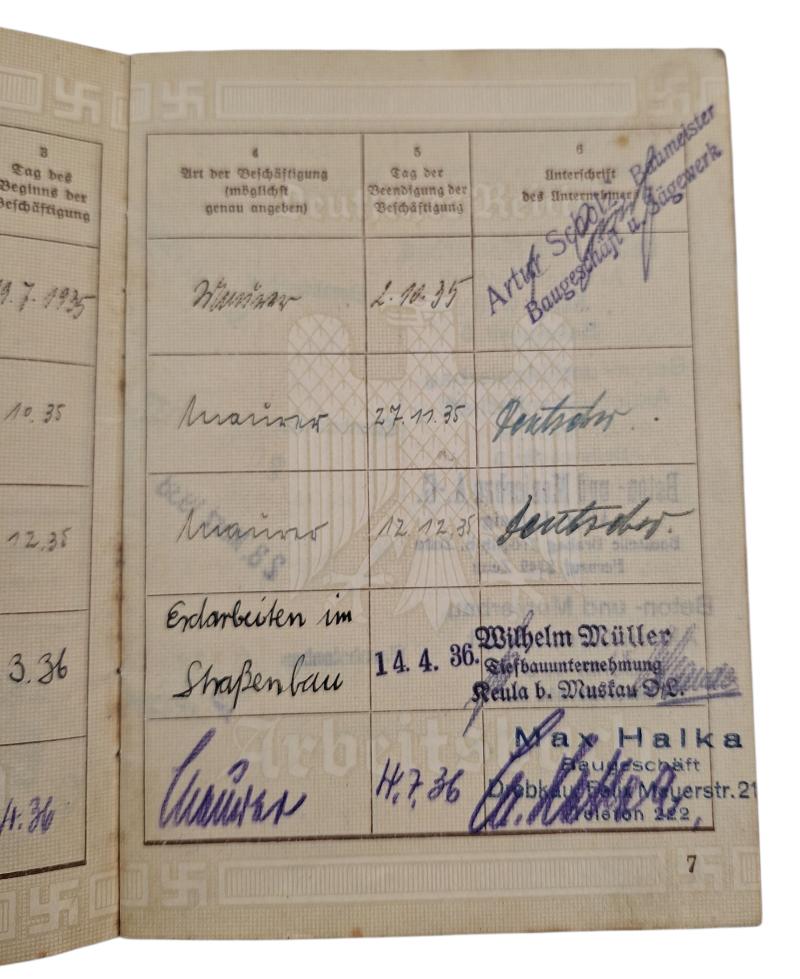 3
Tag des
Beginns der
Beschäftigung
4
Art der Beschäftigung
(möglichst
genau angeben)
5
Tag der
Beendigung der
Beschäftigung
6
Unterschrift
des Unternehmers
9.7.1935
Maurer
2.10.35
Artur Scholz, Baumeister
Baugeschäft u. Sägewerk
10.35
Maurer
27.11.35
Deutscher.
12.35
Maurer
12.12.35
Deutscher.
3.36
Erdarbeiten im
Straßenbau
14.4.36.
Wilhelm Müller
Tiefbauunternehmung
Keula b. Muskau O/L.
4.36
Maurer
4.7.36
Max Halka
Baugeschäft
Drebkau, Felix Meyerstr. 21
Telefon 222
Deutsches Reich
Arbeitsbuch
7